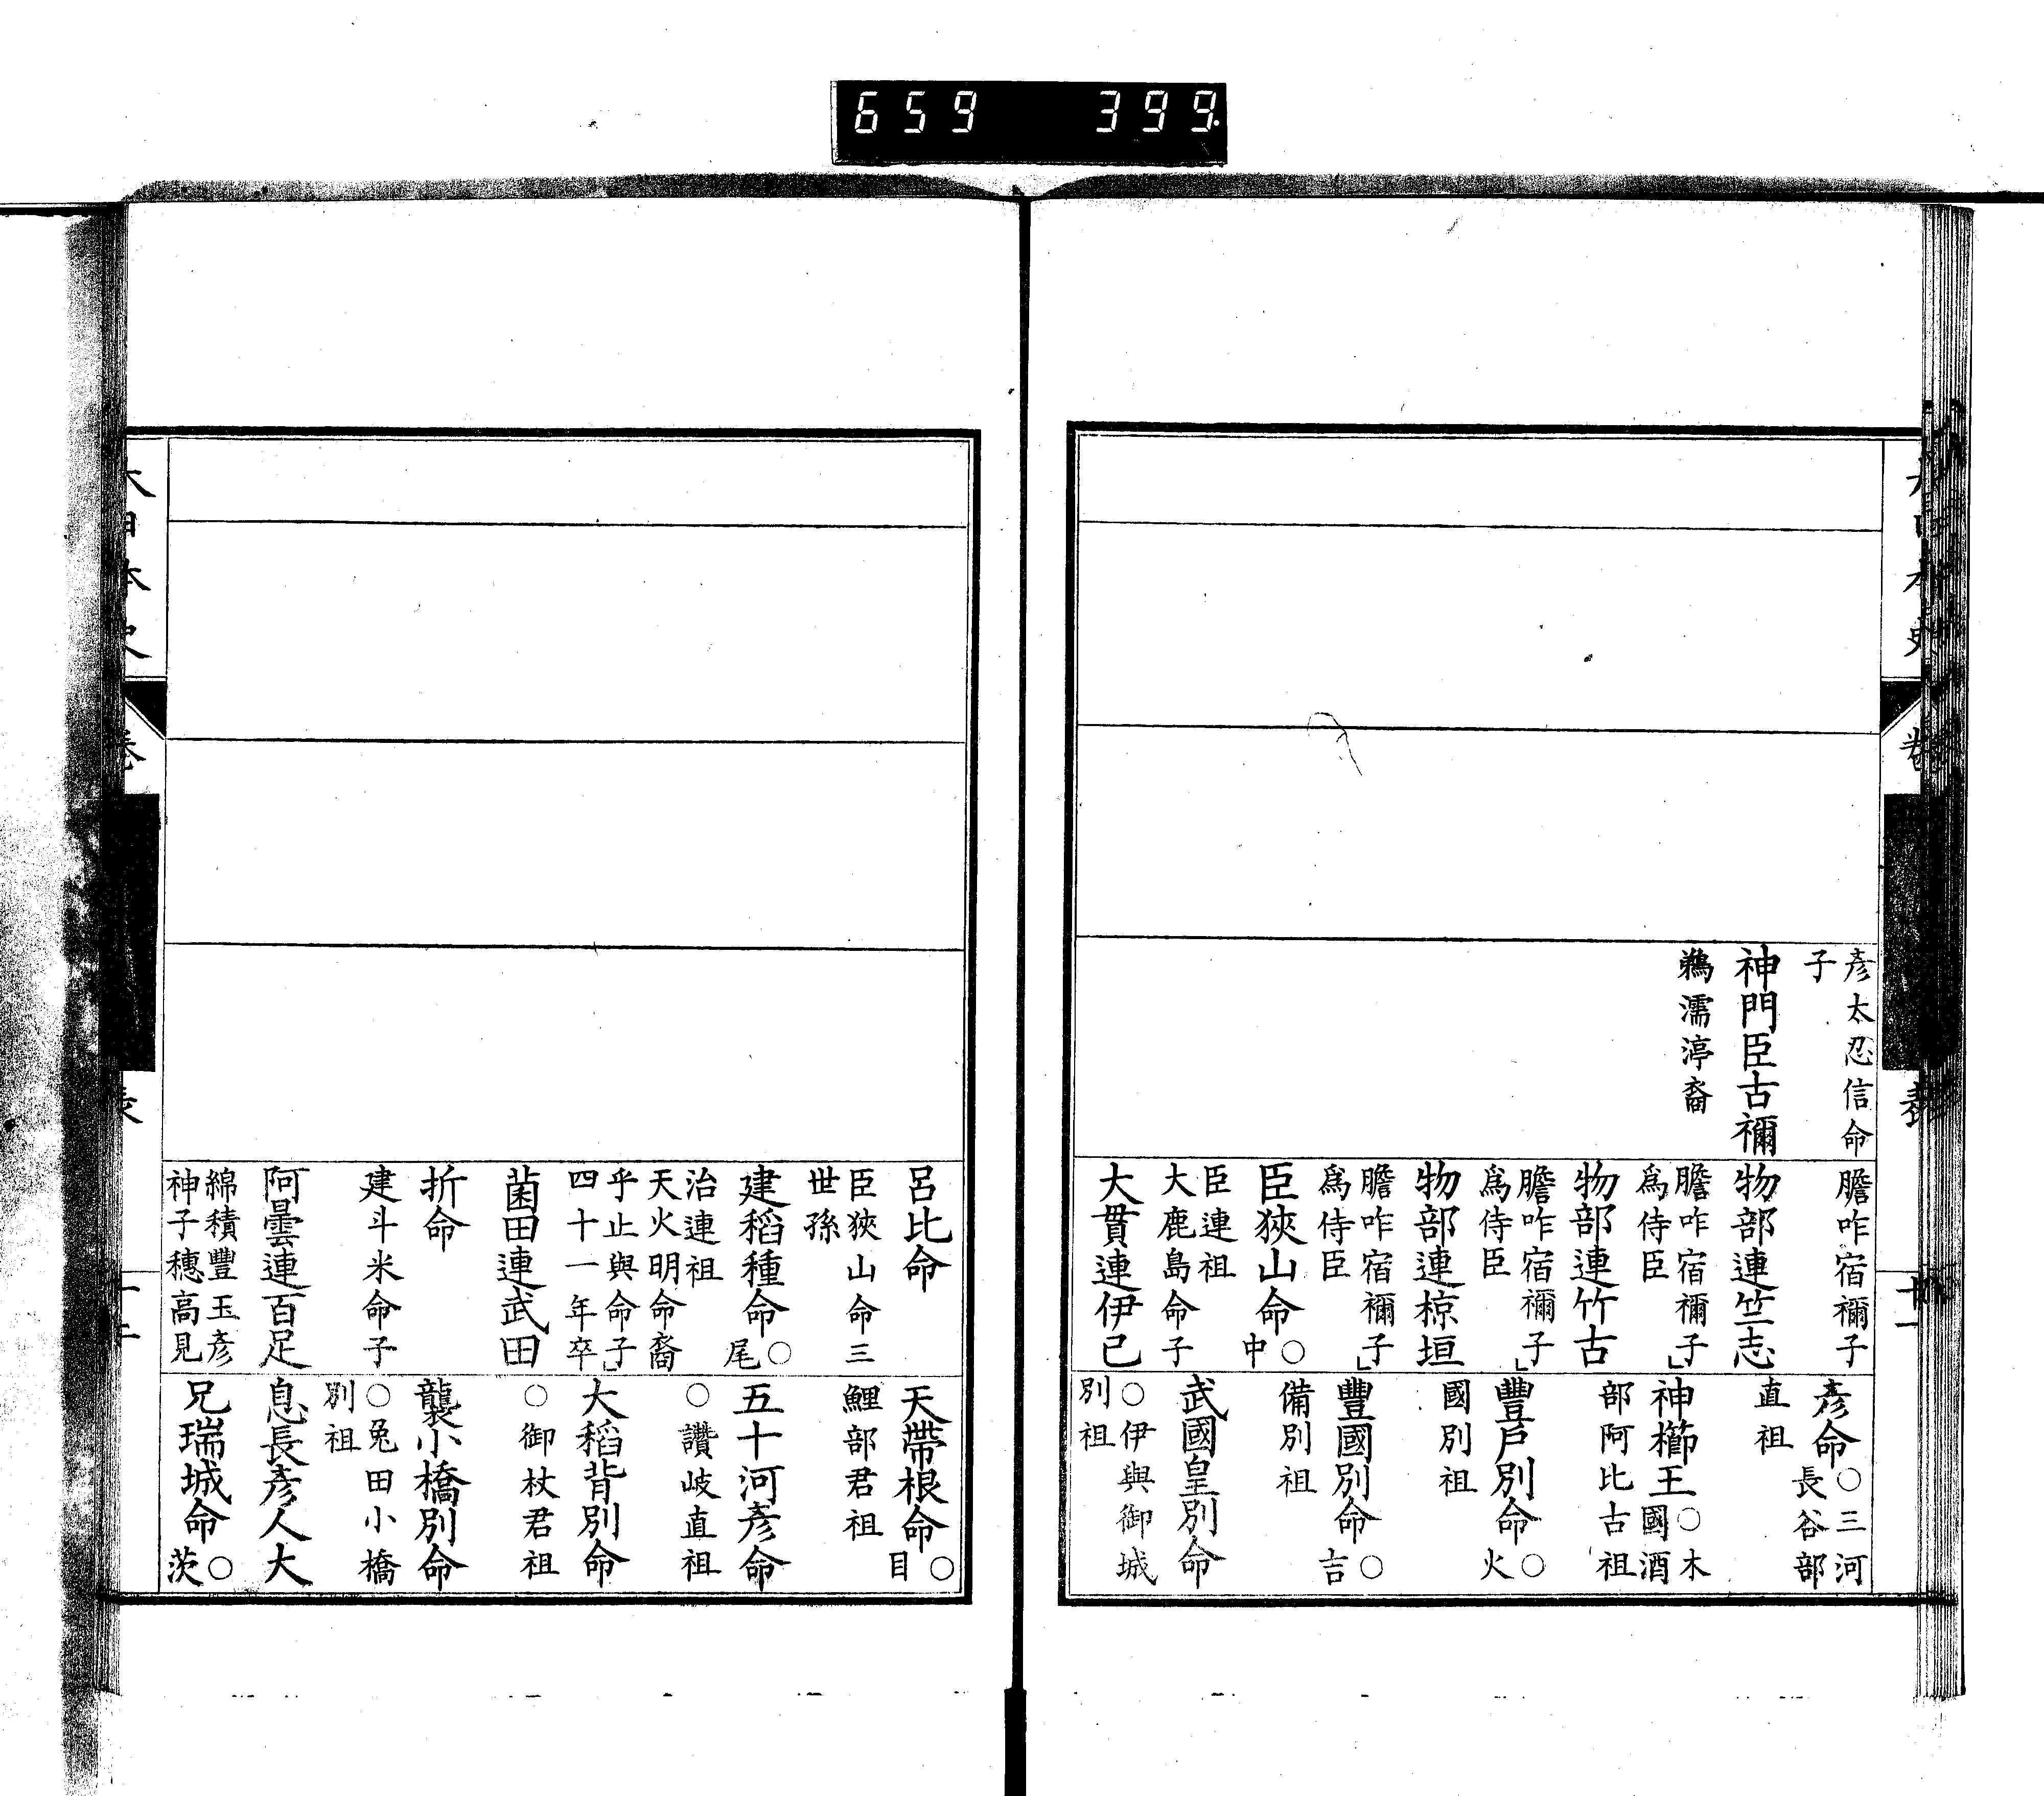 659 399.
彥太忍信命
子
神門臣古禰
鵜濡渟裔
膽咋宿禰子
物部連竺志
膽咋宿禰子」
爲侍臣
物部連竹古
膽咋宿禰子」
爲侍臣
物部連椋垣
膽咋宿禰子」
爲侍臣
臣狹山命○中
臣連祖
大鹿島命子
大貫連伊己
彥命○三河
長谷部
直祖
神櫛王○木
國酒
部阿比古祖
豐戸別命○火
國別祖
豐國別命○吉
備別祖
武國皇別命
○伊與御城
別祖
呂比命
臣狹山命三
世孫
建稻種命○尾
治連祖
天火明命裔
乎止與命子」
四十一年卒
菌田連武田
折命
建斗米命子
阿曇連百足
綿積豐玉彥
神子穗高見
天帶根命○目
鯉部君祖
五十河彥命
○讚岐直祖
大稻背別命
○御杖君祖
襲小橋別命
○兔田小橋
別祖
息長彥人大
兄瑞城命○茨